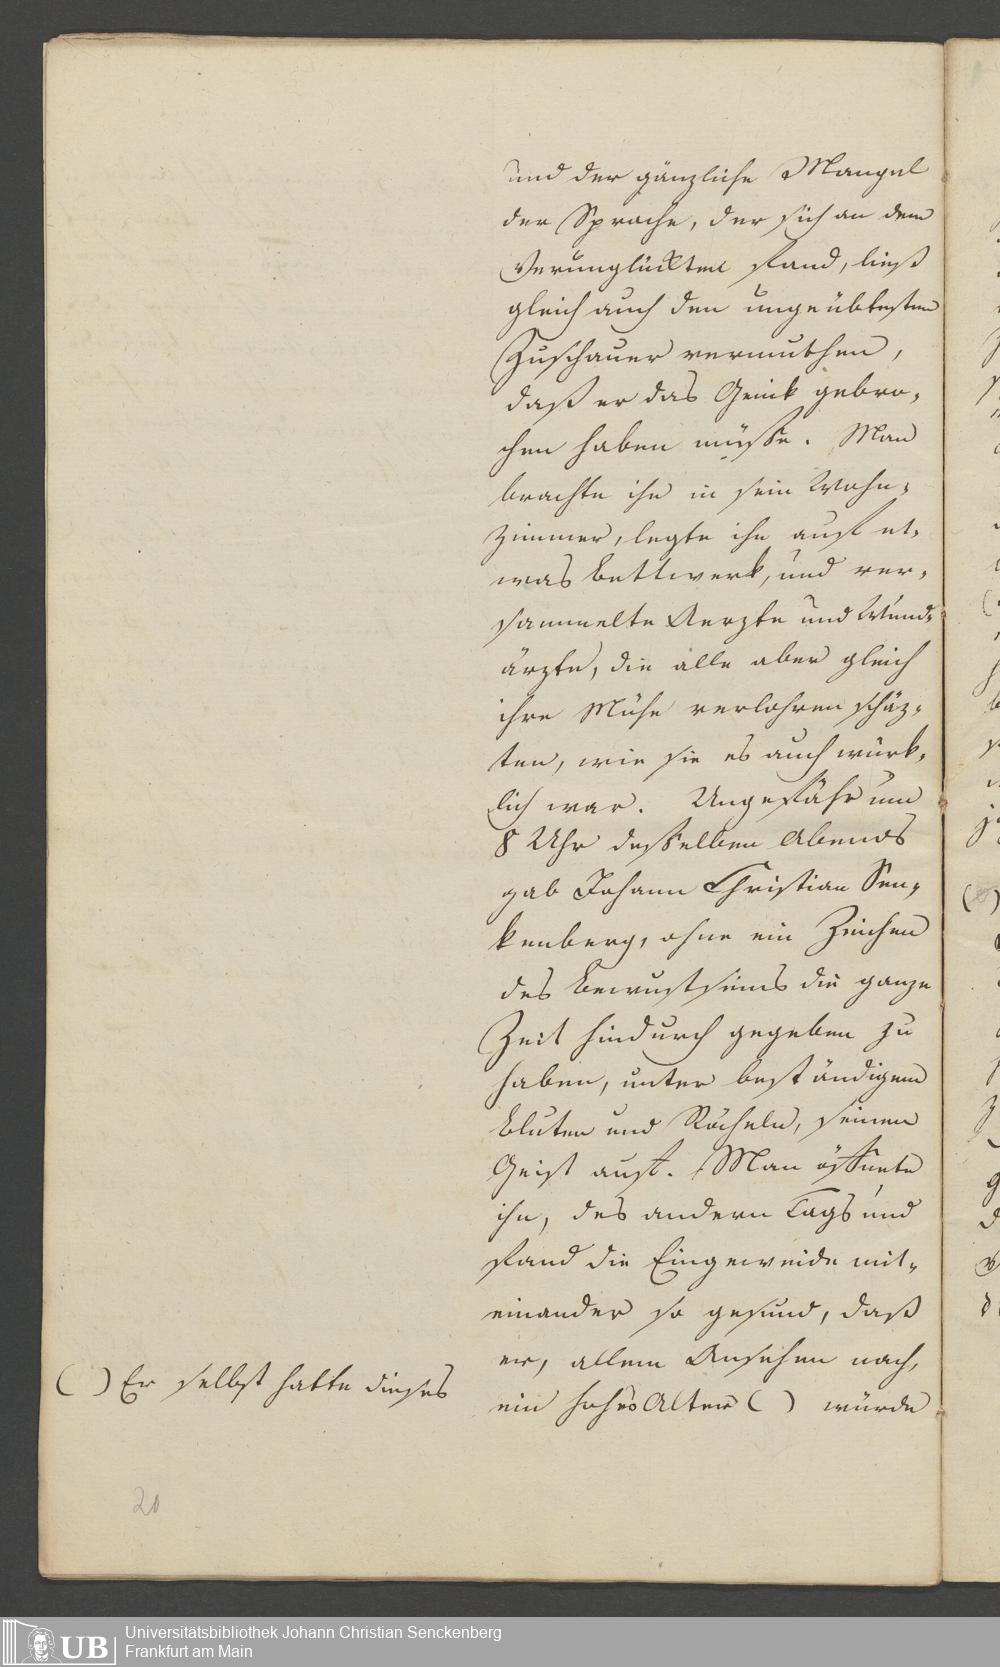 und der gänzliche Mangel
der Sprache, der sich an dem
Verunglückten fand, ließ
gleich auch den ungeübtesten
Zuschauer vermuthen,
daß er das Genik gebro-
chen haben müsse. Man
brachte ihn in sein Wohn-
zimmer, legte ihn auf et-
was Bettwerk, und ver-
sammelte Aerzte und Wund-
ärzte, die alle aber gleich
ihre Mühe verlohren schäz-
ten, wie sie es auch würk-
lich war. Ungefähr um
8 Uhr desselben Abends
gab Johann Christian Sen-
kenberg, ohne ein Zeichen
des Bewustseins die ganze
Zeit hindurch gegeben zu
haben, unter beständigem
Bluten und Röcheln, seinen
Geist auf. Man öffnete
ihn, des andern Tags und
fand die Eingeweide mit-
einander so gesund, daß
er, allem Ansehen nach,
ein hohes Alter ( ) würde
( ) Er selbst hatte dieses
20
UB
Universitätsbibliothek Johann Christian Senckenberg
Frankfurt am Main